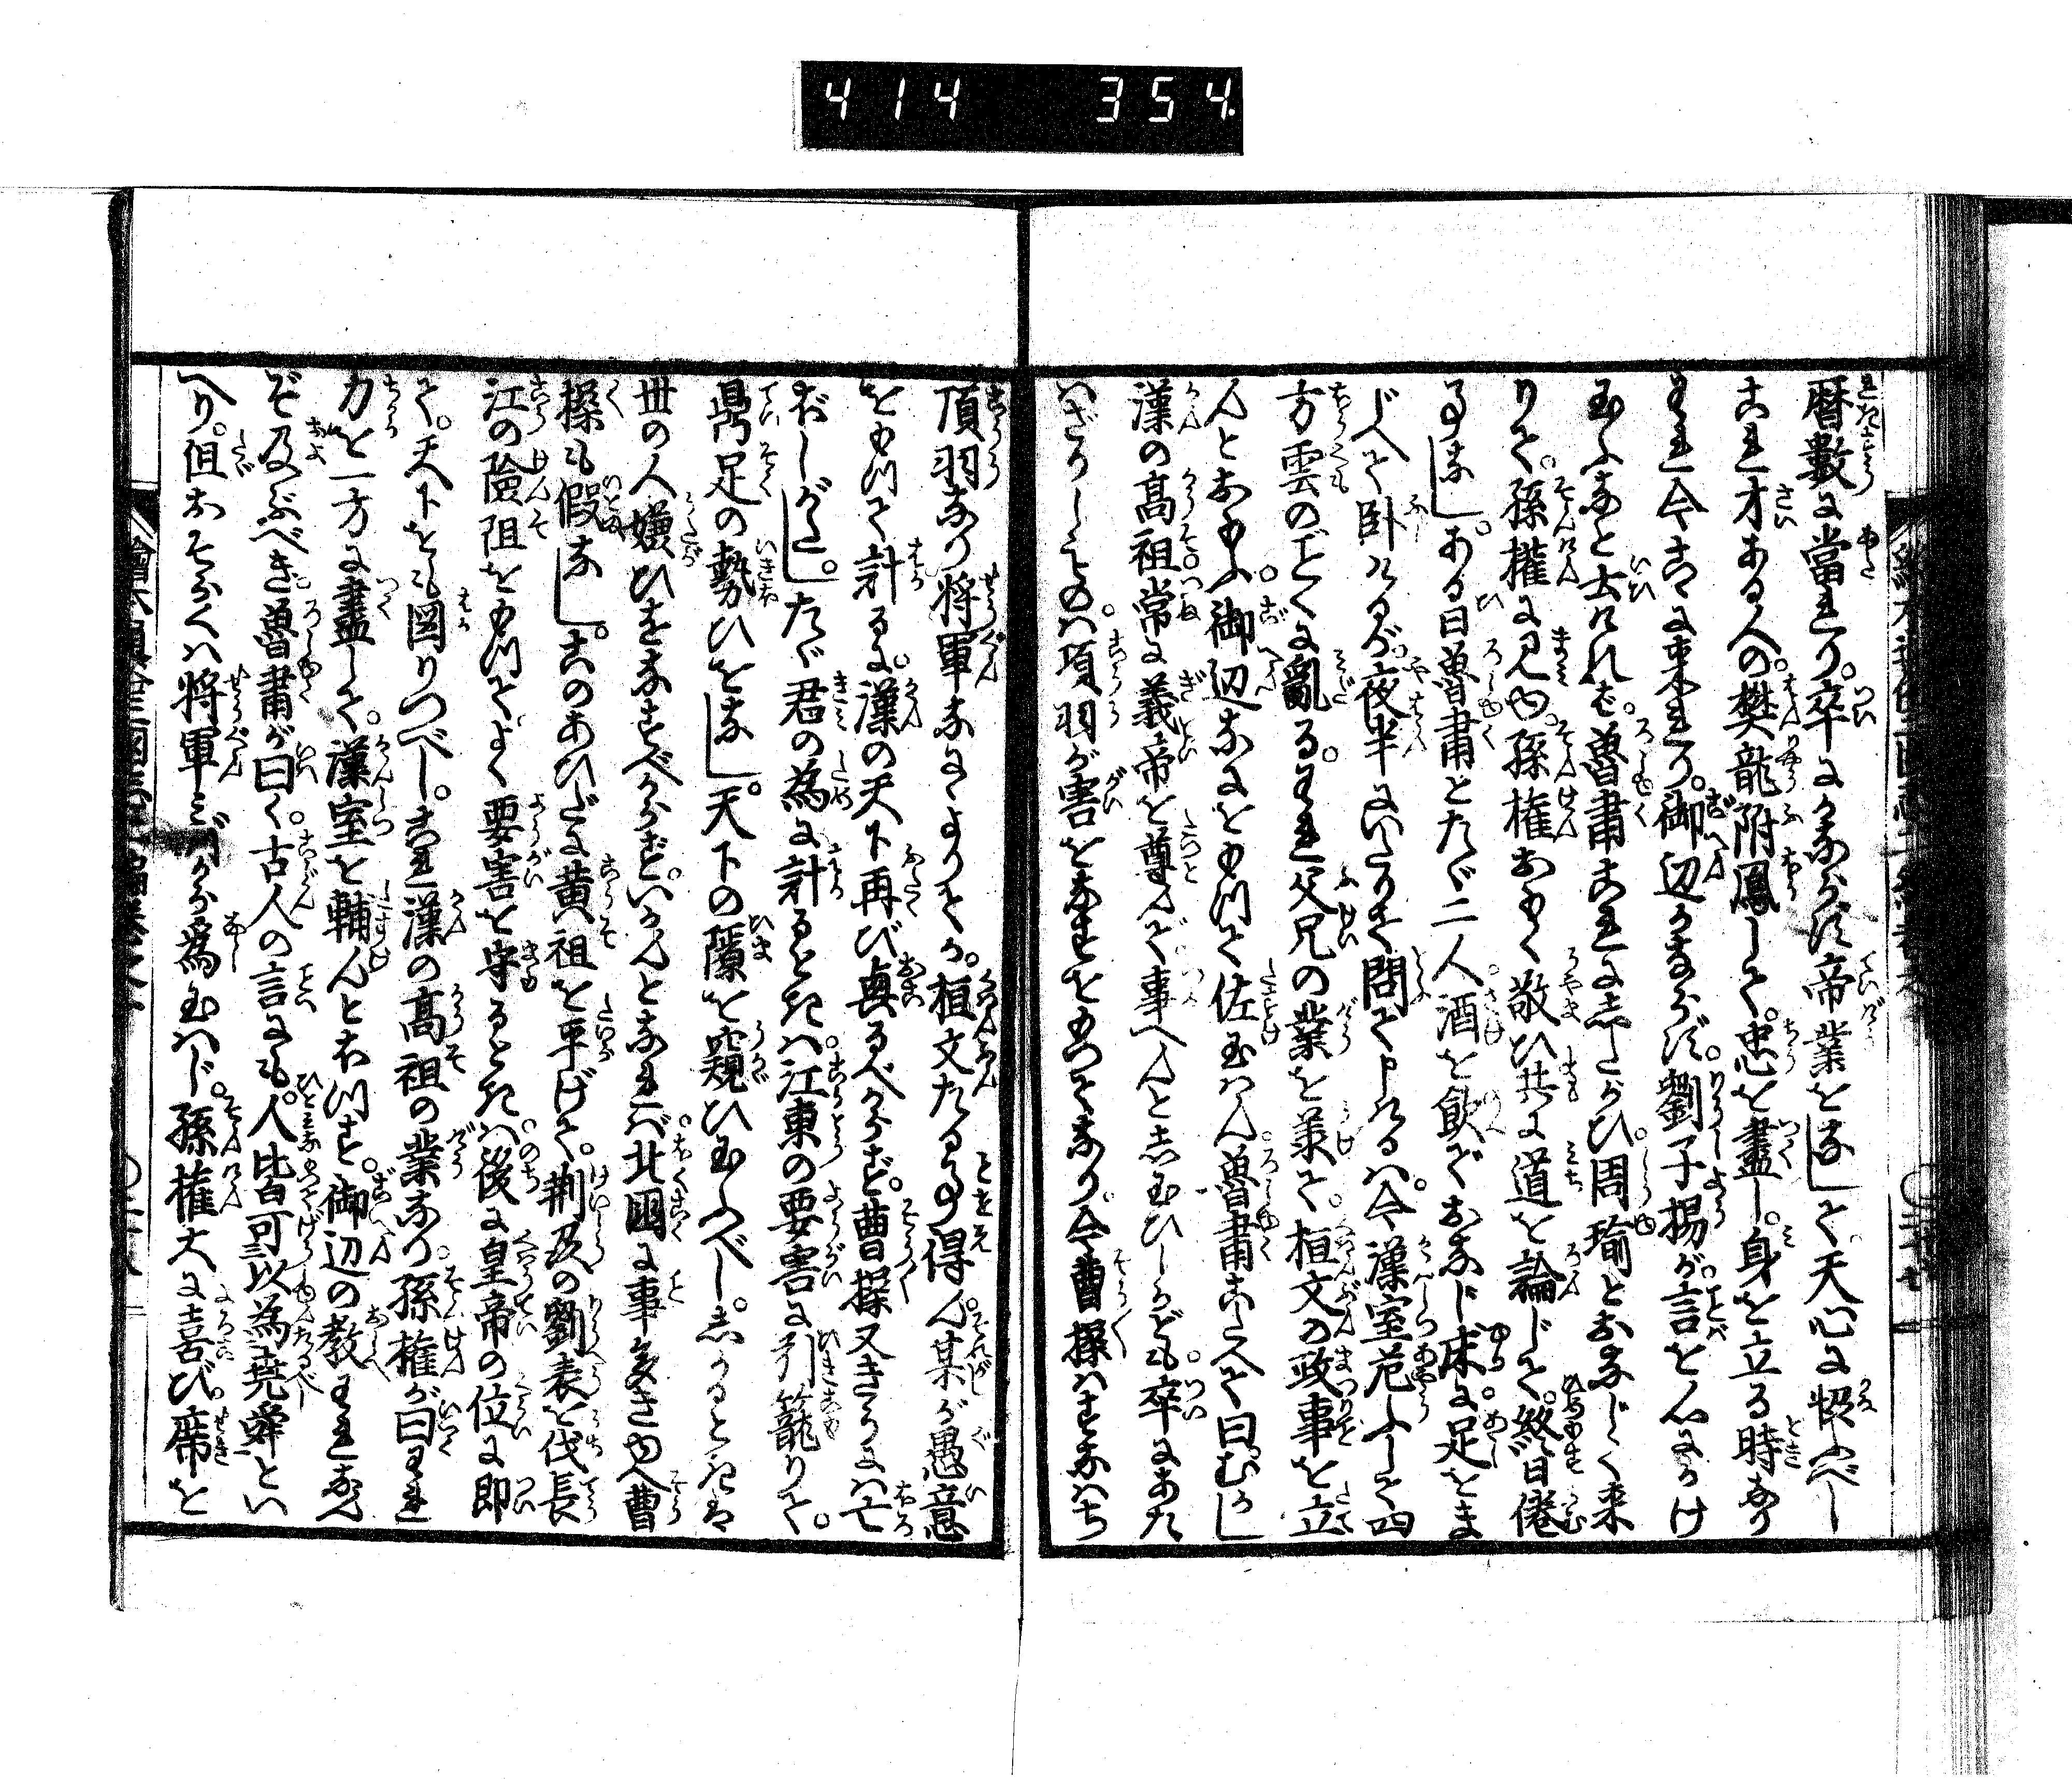 414 354
暦數に當れり。卒にかならず帝業をなして天心に招ふべし
これ才ある人の。樊龍附鳳して。忠を盡し。身を立る時なり
われ今こゝに来れり。御辺かならず。劉子揚が。言を心にかけ
玉ふなと云ければ。魯肅これにしたがひ。周瑜とおなじく来
りて。孫權に見ゆ。孫権おもく敬ひ共に道を論じて。終日倦
る事なし。ある日魯肅とたゞ二人酒を飲でおなじ床に。足をま
じへて卧けるが。夜半にいたりて問で申けるハ。今漢室危ふして四
方雲のごとくに亂る。われ父兄の業を兼て。桓文の政事を立
んとおもふ。御辺なにをもつて佐玉はん魯肅こたへて曰。むかし
漢の高祖常に義帝を尊んで事へんとし玉ひしかども。卒にあた
ハざりしものハ。項羽が害をなすをもつてなり。今曹操ハすなハち
項羽なり将軍なにょりてか。桓文たる事得ん。某が愚意
をもつて計るに。漢の天下再び興るべからず。曹操又きうにハ亡
ぼしがたし。たゞ君の為に計るときハ。江東の要害に引籠りて。
鼎足の勢ひをなし。天下の隙を窺ひ玉ふべし。しかるときは
世の人嫌ひをなすべからず。いかんとなれば。北国に事多きゆへ曹
操も假なし。このあひだに黄祖を平げて。荆及の劉表を伐長
江の險阻をもつて。よく要害を守るときハ。後に皇帝の位に即
て。天下をも図りつべし。これ漢の高祖の業なり。孫権が曰われ
力を一方に盡して。漢室を輔んとおもつす。御辺の教われなん
ぞ及ぶべき。魯肅が曰く。古人の言にも。人皆可以為堯舜とい
へり。但おそらくハ将軍ミづから為玉ハじ。孫権大に喜び。席を